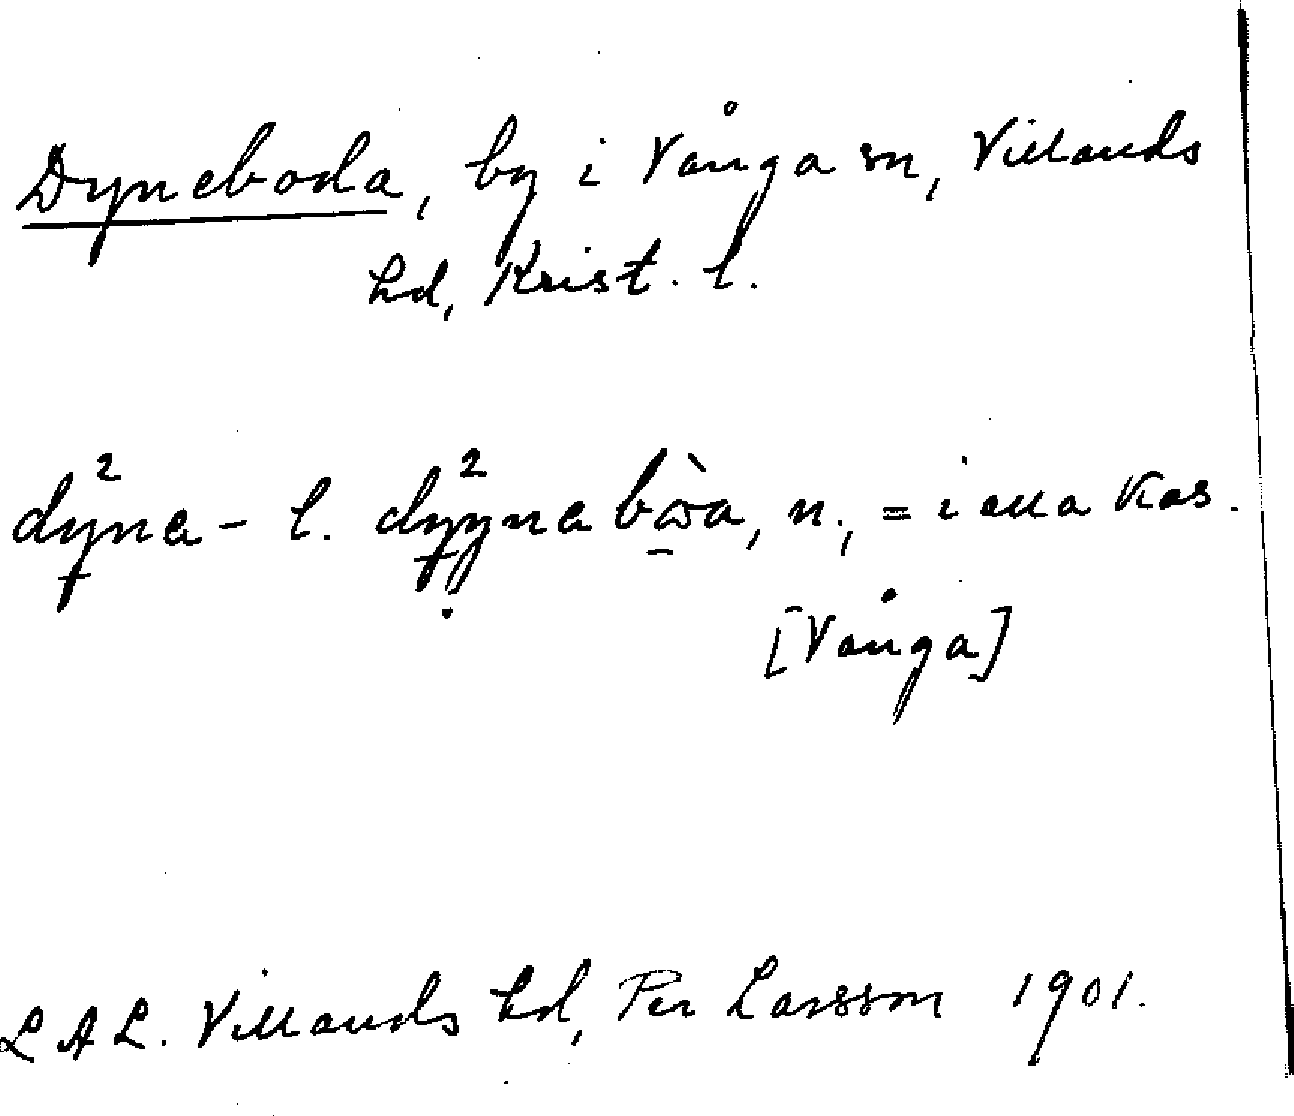 Dyneboda, by i Vånga sn, Villands
hd, Krist. l.
dy²na- l. dy²yna bòa, n., = i alla kas.
[Vånga]
LAL. Villands hd, Per Larsson 1901.